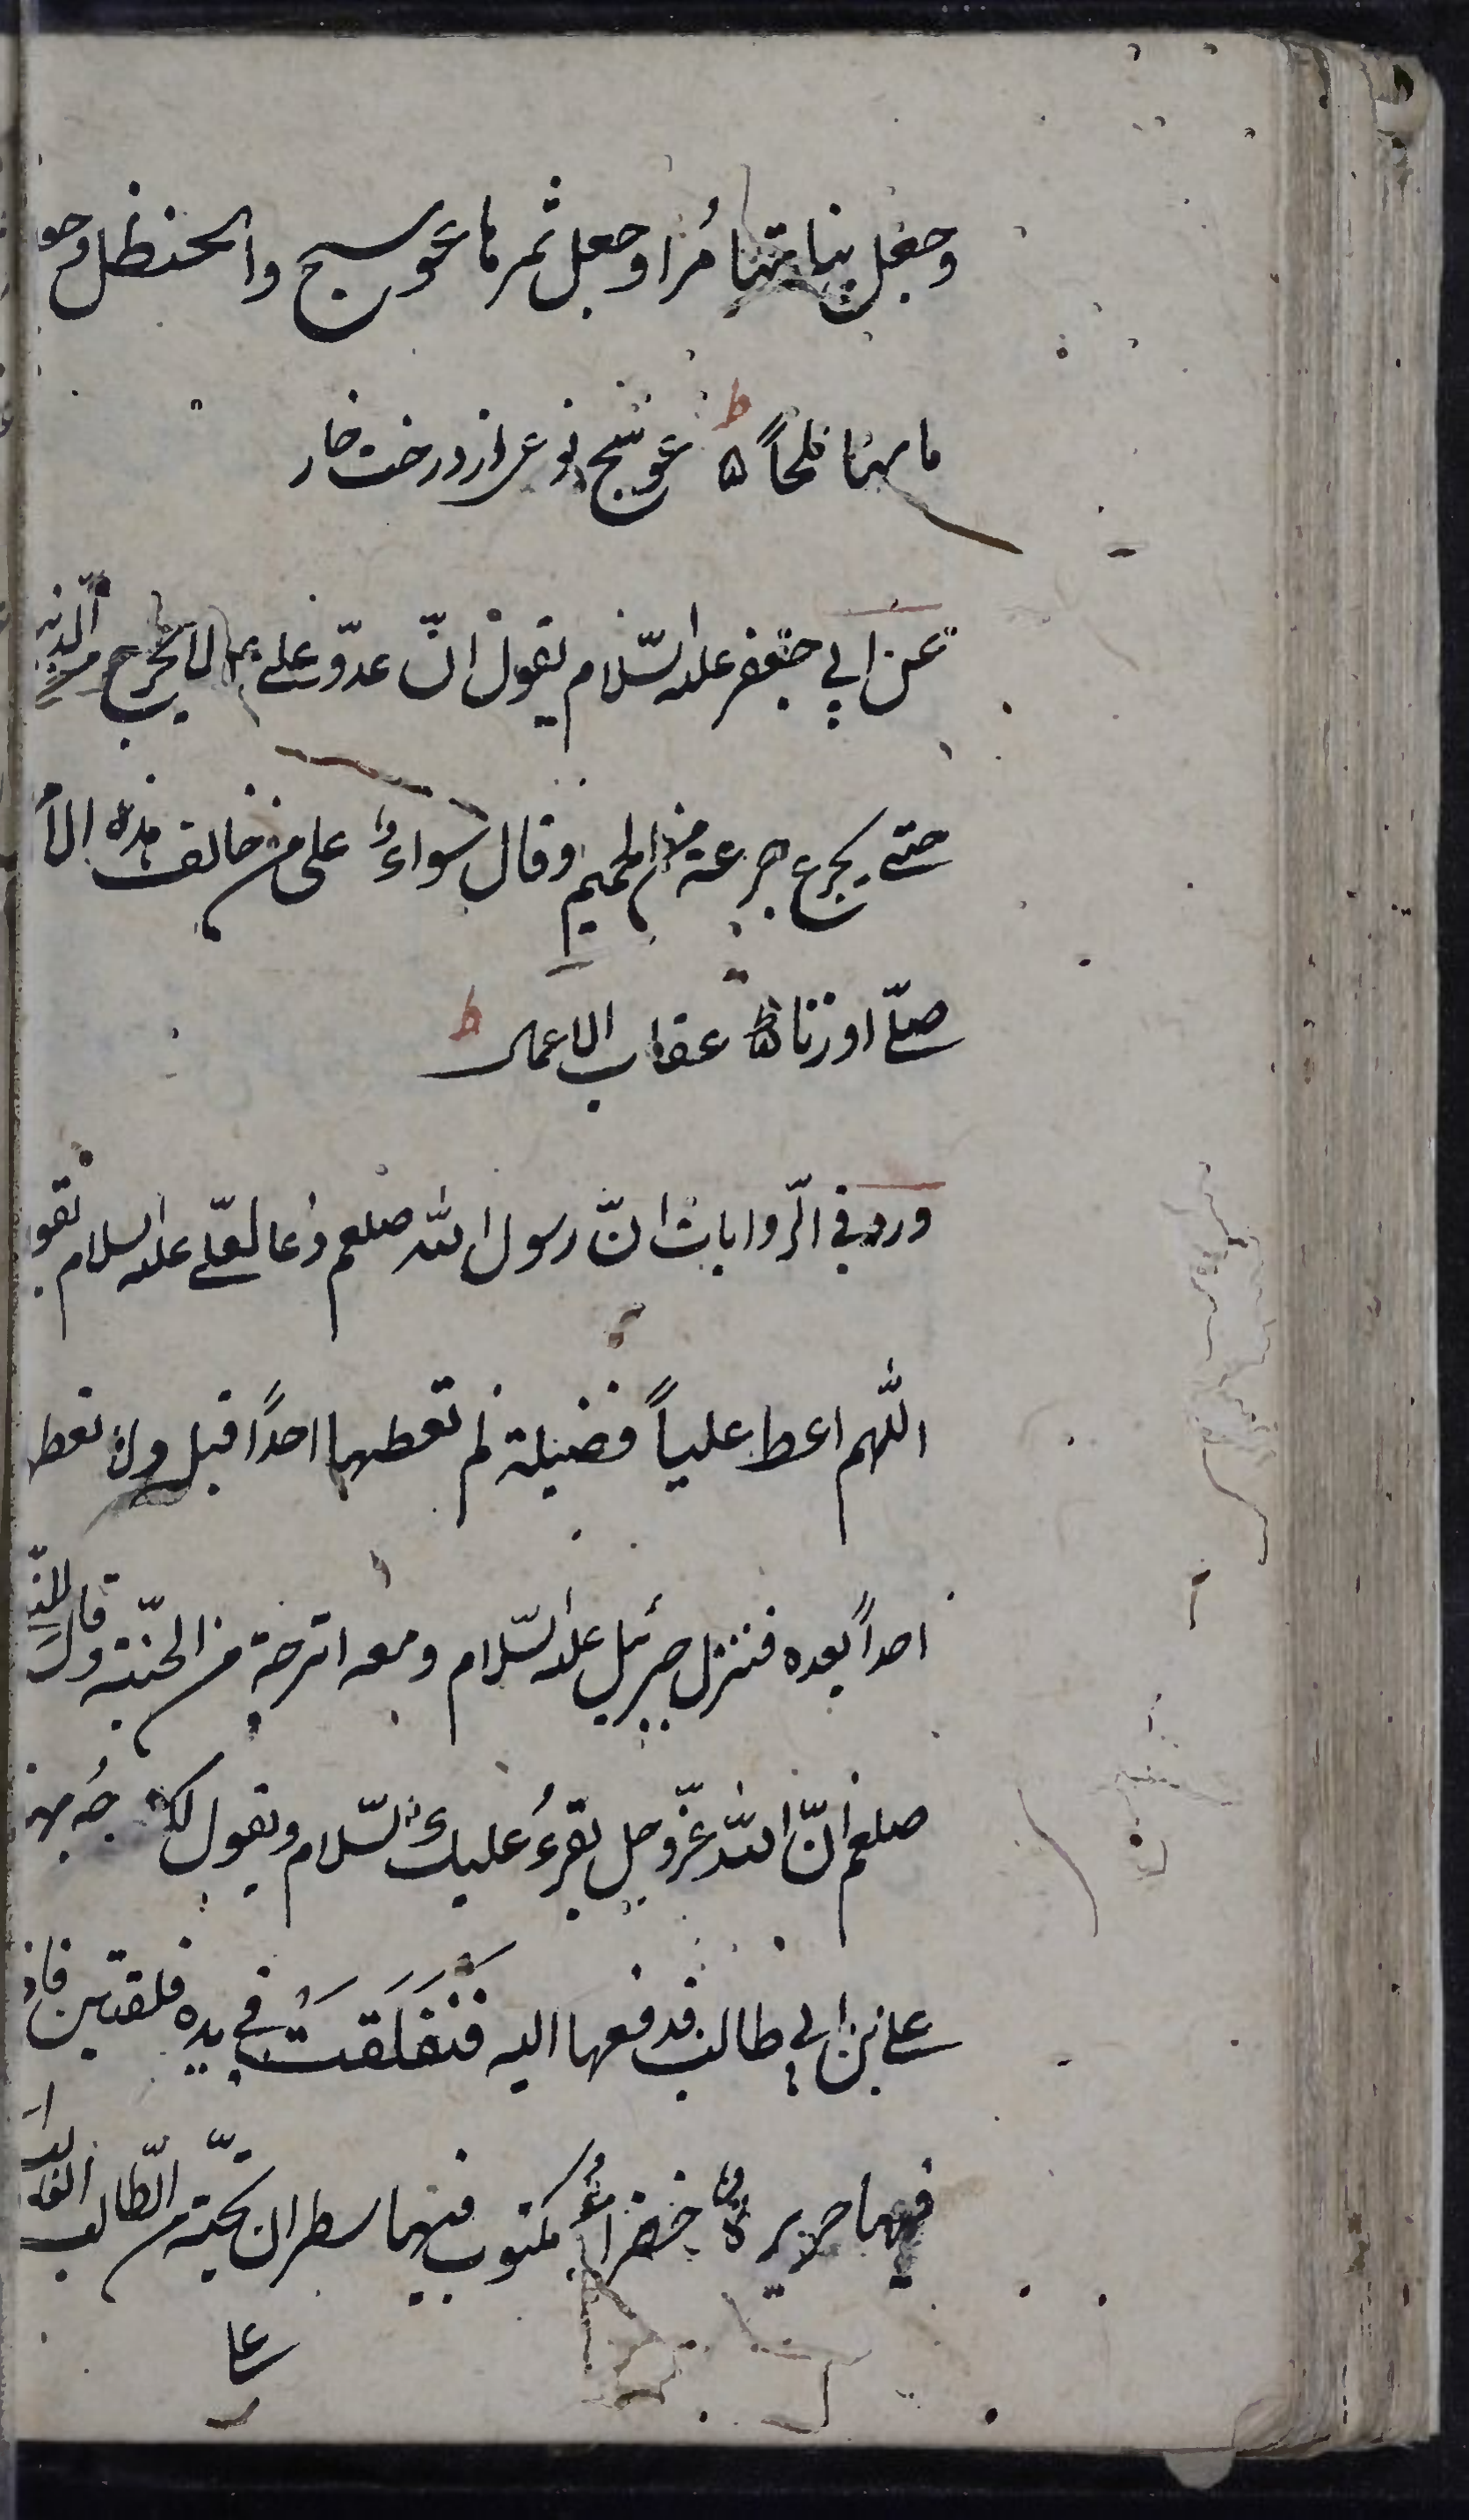 وجعل بناتها مُرا وجعل ثمرها عوسج والحنظل وجعل
ماءها ملحاً ۵ عوسج نوعی از درخت خار
عن ابی جعفر علیه السّلام یقول انّ عدوّ علی ع لا یخرج من الدنیا
حتی یجرع جرعة من الحمیم وقال سواءٌ علی من خالف هذه الأ
صلّی او زنا ۵ عقاب الاعمال
ورد فی الرّوایات انّ رسول الله صلعم دعا لعلی علیه السلام فقو
اللّهم اعط علیاً فضیلة لم تعطها احدًا قبل ولا تعط
احداً بعده فنزل جبرئیل علیه السّلام ومعه اترجة من الجنّة وقال
صلعم انّ الله عزّوجل یقرءُ علیک السّلام ویقول لک
علی بن ابی طالب فدفعها الیه فَنفَلَقَتْ فی یده فلقتین فاذ
فیهما حریرةٌ خضرأُ مکتوب فیها سطران تحیّة من الطّالب الغالب
علی